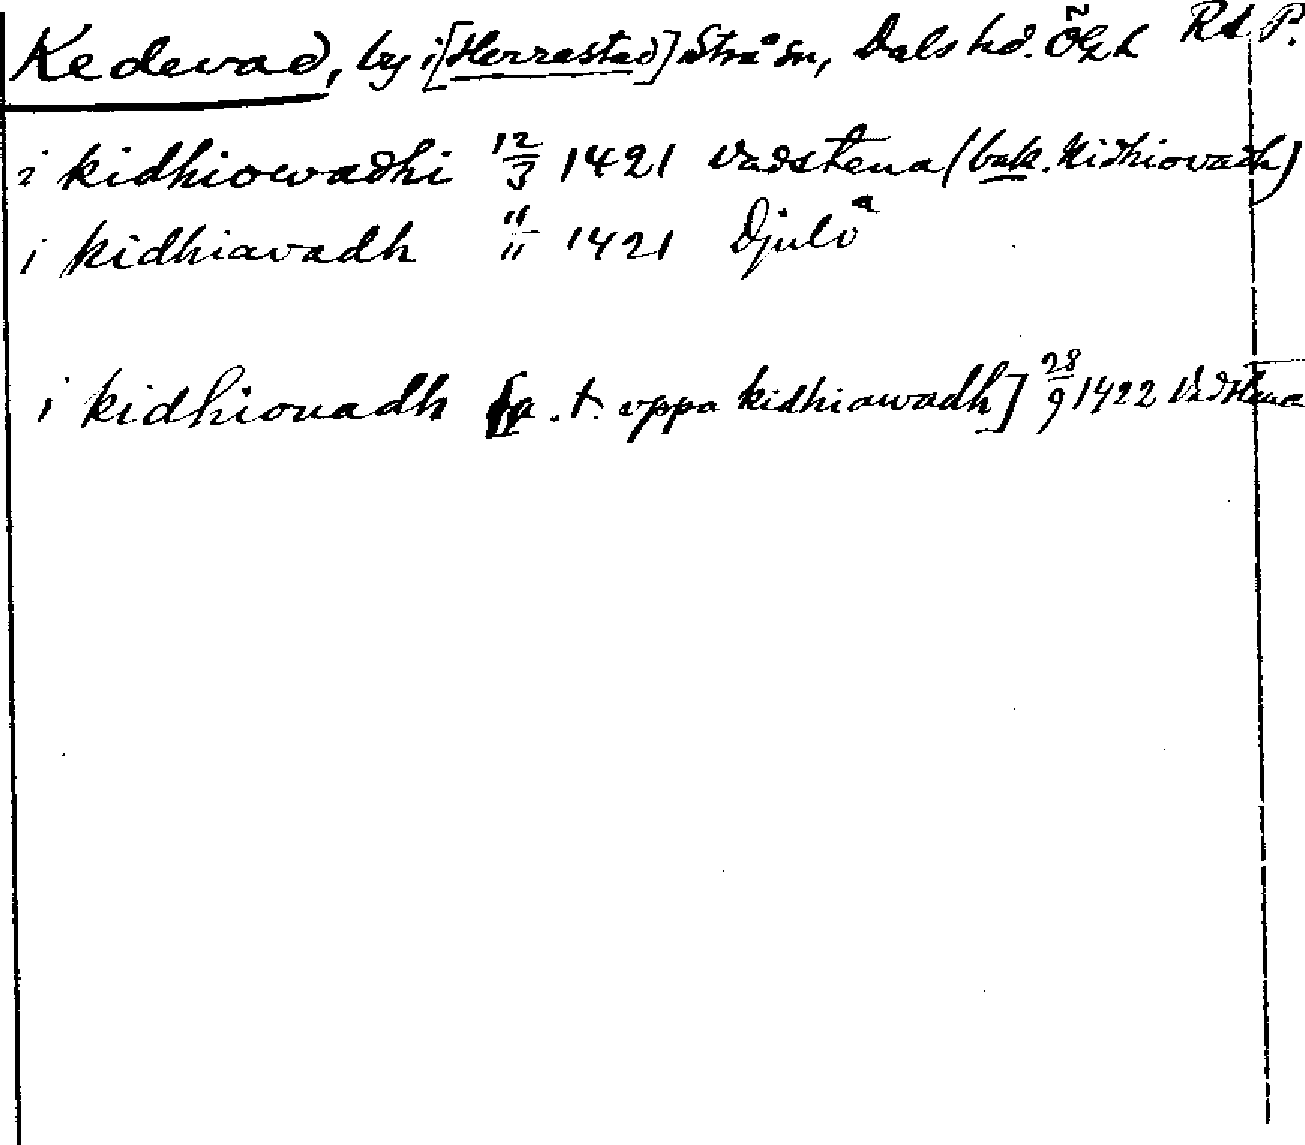 Kedevad, by i [Herrestad] Strå sn, Dals hd. Ögh RAP.
i kidhiowadhi 12/3 1421 Vadstena (bak. kidhiovadh)
i kidhiavadh "/" 1421 Djulö
i kidhiouadh [a. t. oppa kidhiawadh] 28/9 1422 Vadstena